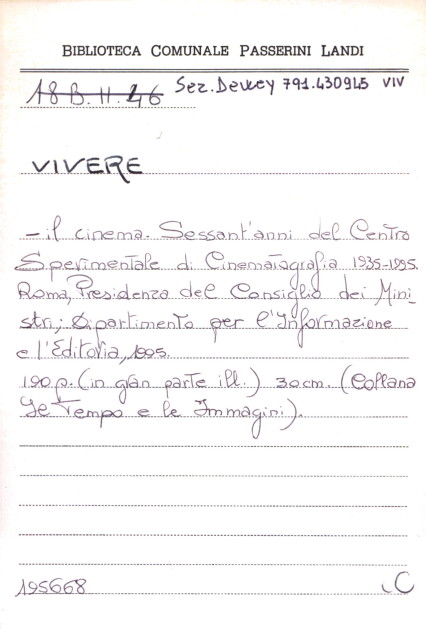 BIBLIOTECA COMUNALE PASSERINI LANDI
18 B. II. 46 Sez. Dewey 791.430945 VIV
VIVERE
- il cinema. Sessant'anni del Centro
Sperimentale di Cinematografia 1935-1995.
Roma, Presidenza del Consiglio dei Mini
stri; Dipartimento per l'Informazione
e l'Editoria, 1995.
190 p. (in gran parte ill.) 30 cm. (Collana
Il Tempo e le Immagini).
195668 C